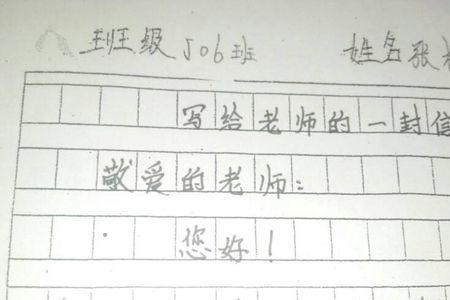 班级506班 姓名张
写给老师的一封信
敬爱的老师:
您好!